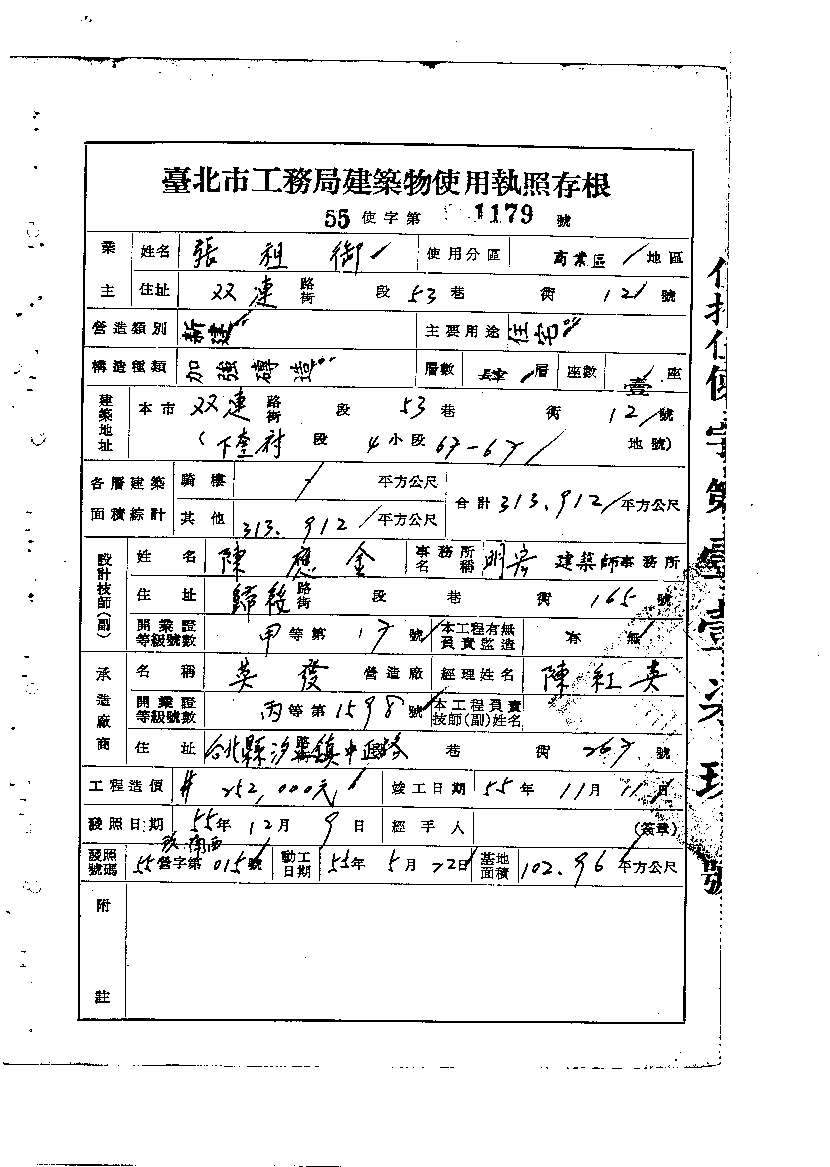 臺北市工務局建築物使用執照存根
55 使字第 1179 號
業主 姓名 張祖衡 使用分區 商業區 地區
住址 双連 路街 段 53 巷 衖 12 號
營造類別 新建 主要用途 住宅
構造種類 加強磚造 層數 層 座數 壹 座
建築地址 本市 双連 路街 段 53 巷 衖 12 號
(下奎府 段 4 小段 67-67 地號)
各層建築面積綜計 騎樓 / 平方公尺 合計 313.912 平方公尺
其他 313.912 平方公尺
設計技師(副) 姓名 陳應金 事務所名稱 明宏 建築師事務所
住址 歸綏 路街 段 巷 衖 165 號
開業證等級號數 甲 等第 17 號 本工程有無負責監造 有 無
承造廠商 名稱 英發 營造廠 經理姓名 陳紅英
開業證等級號數 丙 等第 1598 號 本工程負責技師(副)姓名
住址 台北縣汐止鎮中正路 巷 衖 267 號
工程造價 # 252,000元 竣工日期 55 年 11 月 11 日
發照日期 55 年 12 月 9 日 經手人 (簽章)
發照號碼 55 營字第 015 號 動工日期 55 年 5 月 22 日 基地面積 102.96 平方公尺
附註
使字第壹壹柒玖號